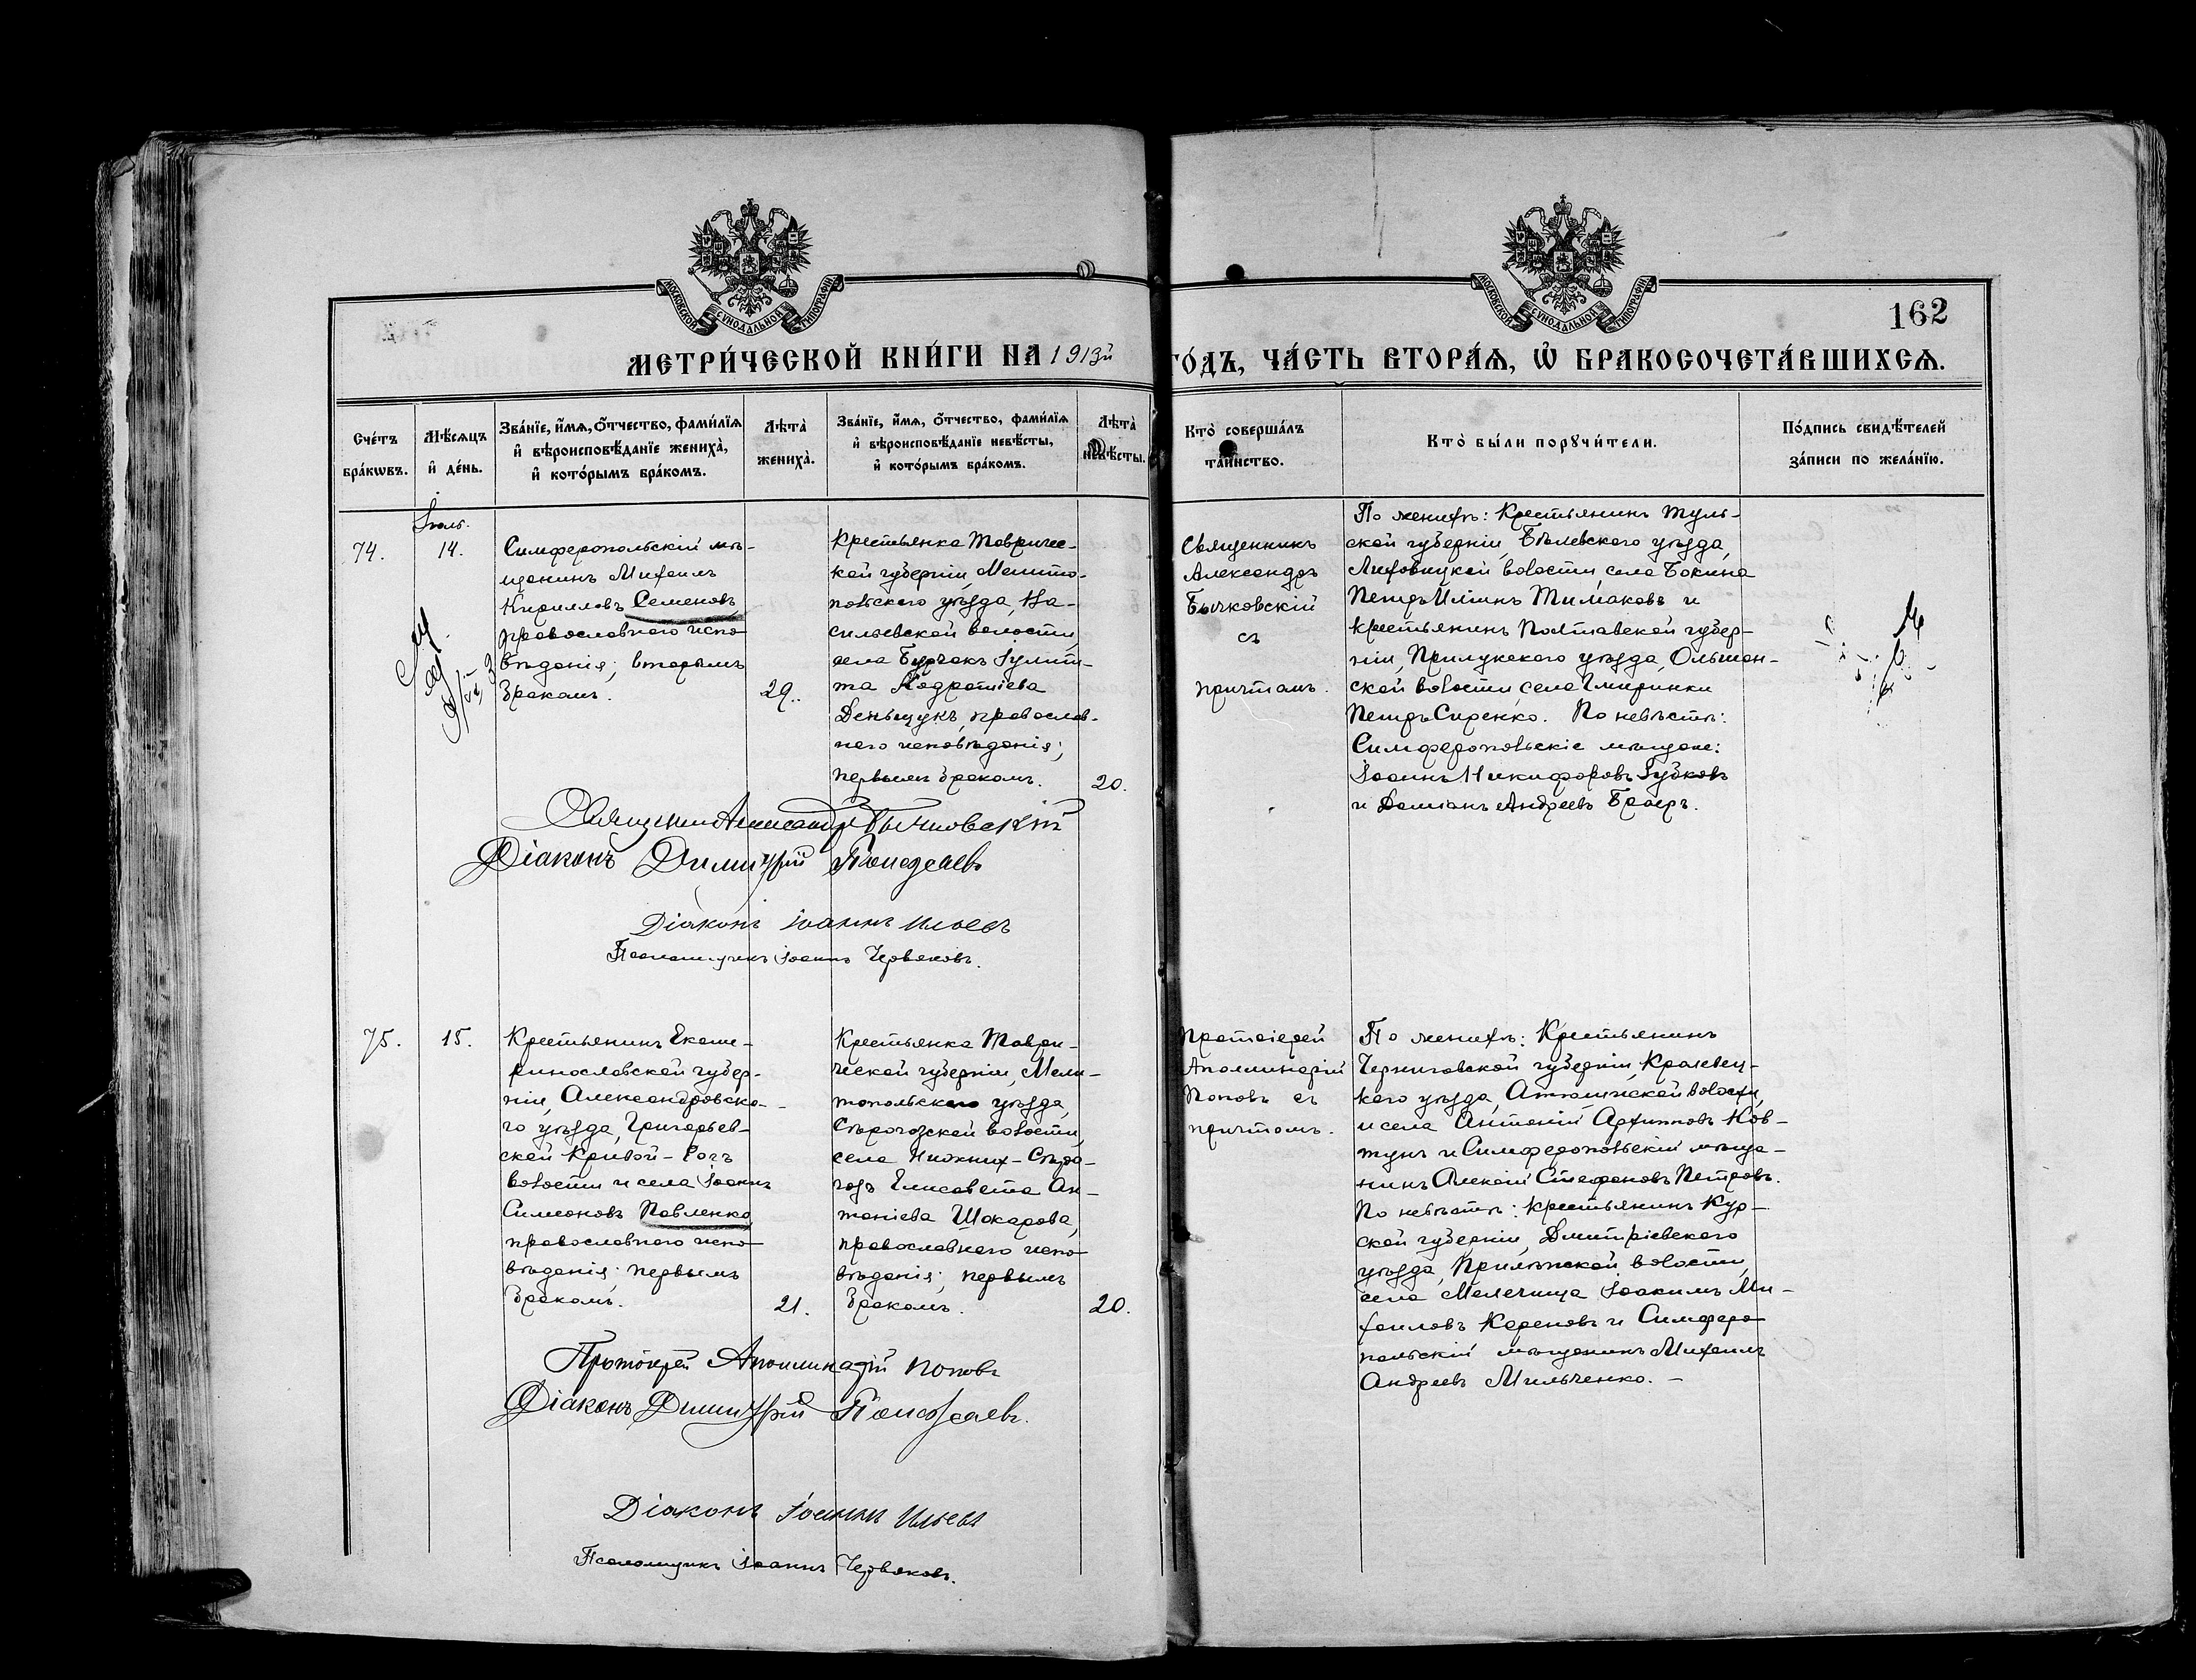 МОСКОВСКОЙ СѴНОДАЛЬНОЙ ТИПОГРАФІИ
МОСКОВСКОЙ СѴНОДАЛЬНОЙ ТИПОГРАФІИ
162
МЕТРИ́ЧЕСКОЙ КНИ́ГИ НА 1913й ГО́ДЪ, ЧА́СТЬ ВТОРА́Ѧ, Ѡ҆ БРАКОСОЧЕТА́ВШИХСѦ.
Сче́тъ бра́кѡвъ.
Мѣ́сѧцъ и҆ де́нь.
Зва́нїе, и҆́мѧ, ѻ҆́тчество, фами́лїѧ и҆ вѣроисповѣ́данїе жениха̀, и҆ кото́рымъ бра́комъ.
Лѣта̀ жениха̀.
Зва́нїе, и҆́мѧ, ѻ҆́тчество, фами́лїѧ и҆ вѣроисповѣ́данїе невѣ́сты, и҆ кото́рымъ бра́комъ.
Лѣта̀ невѣ́сты.
Кто̀ соверша́лъ та́инство.
Кто̀ бы́ли порꙋчи́тели.
По́дпись свидѣ́телей за́писи по жела́нїю.
Іюль.
74.
14.
Симферопольскій мѣ-
щанинъ Михаилъ
Кирилловъ Семеновъ,
православнаго испо-
вѣданія; вторымъ
бракомъ.
29.
Крестьянка Тавриче-
кой губерніи, Мелито-
польского уѣзда, Ва-
сильевской волости,
села Бурчакъ Іулит-
та Кодратіева
Деньщукъ, православ-
наго исповѣданія;
первымъ бракомъ.
20.
Священникъ
Александръ
Бычковскій
съ
причтомъ.
По женихѣ: Крестьянинъ Туль-
ской губерніи, Бѣлевского уѣзда,
волости, села Бокина
Петръ Ильинъ Тимаковъ и
крестьянинъ Полтавской губер-
ніи, Прилукского уѣзда, Ольшан-
ской волости села Гмиринки
Петръ Сиренко. По невѣстѣ:
Симферопольскіе мѣщане:
Іоаннъ Никифоровъ Зубковъ
и Даміанъ Андреевъ Браеръ.
Священникъ Александръ Бычковскій
Діаконъ Димитрій
Діаконъ Іоаннъ Ильевъ
Псаломщикъ Іоаннъ Червяковъ.
75.
15.
Крестьянинъ Екате-
ринославской губер-
ніи, Александровска-
го уѣзда, Григорьев-
ской Кривой-Рогъ
волости и села Іоаннъ
Симеоновъ Павленко,
православнаго испо-
вѣданія; первымъ
бракомъ.
21.
Крестьянка Таври-
ческой губерніи, Мели-
топольскаго уѣзда,
Сѣрогозской волости,
села Нижних-Сѣро-
гозъ Елисавета Ан-
тоніева Шокарова,
православнаго испо-
вѣданія; первымъ
бракомъ.
20.
Протоіерей
Аполлинарій
Поповъ съ
причтомъ.
По женихѣ: Крестьянинъ
Черниговской губерніи, Кролевец-
кого уѣзда, волости,
и села Антоній Архиповъ Ков-
тунъ и Симферопольскій мѣща-
нинъ Алексій Стефановъ Петровъ.
По невѣстѣ: крестьянинъ Кур-
ской губерніи, Дмитріевского
уѣзда, волости,
села Іоакимъ Ми-
хаиловъ Кореновъ и Симферо-
польскій мѣщанинъ Михаилъ
Андреевъ Мильченко. –
Протоіерей Аполлинарій Поповъ
Діаконъ Димитрій
Діаконъ Іоаннъ Ильевъ
Псаломщикъ Іоаннъ Червяковъ.